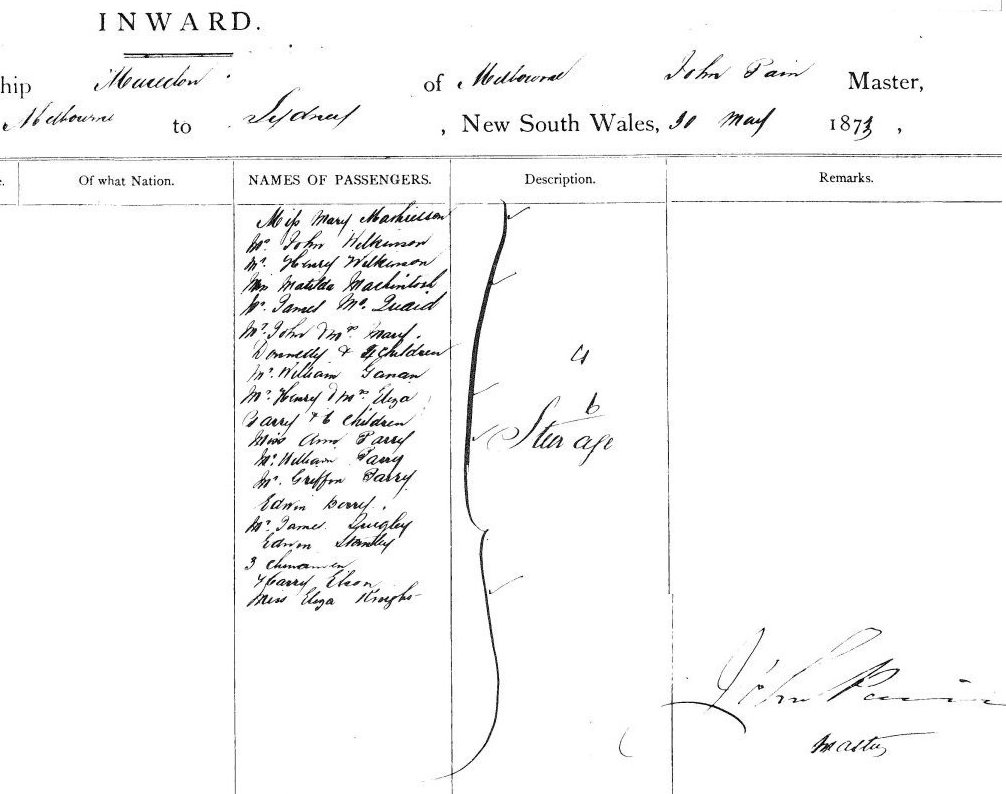 INWARD.
hip Macedon of Melbourne John Pain Master,
Melbourne to Sydney, New South Wales, 30 May 1873,
e. Of what Nation. NAMES OF PASSENGERS. Description. Remarks.
Miss Mary Mathieson
Mr. John Wilkinson
Mr. Henry Wilkinson
Miss Matilda Mackintosh
Mr. James Mc. Quaid
Mr. John & Mrs. Mary
Donnelly & 4 Children
Mr. William Ganan
Mr. Henry & Mrs. Eliza
Parry & 6 Children
Miss Ann Parry
Mr. William Parry
Mr. Griffin Parry
Edwin Berry
Mr. James Quigley
Edwin Stanley
3 Chinamen
Harry Elson
Miss Eliza Knight
4
6
Steerage
John Pain
Master